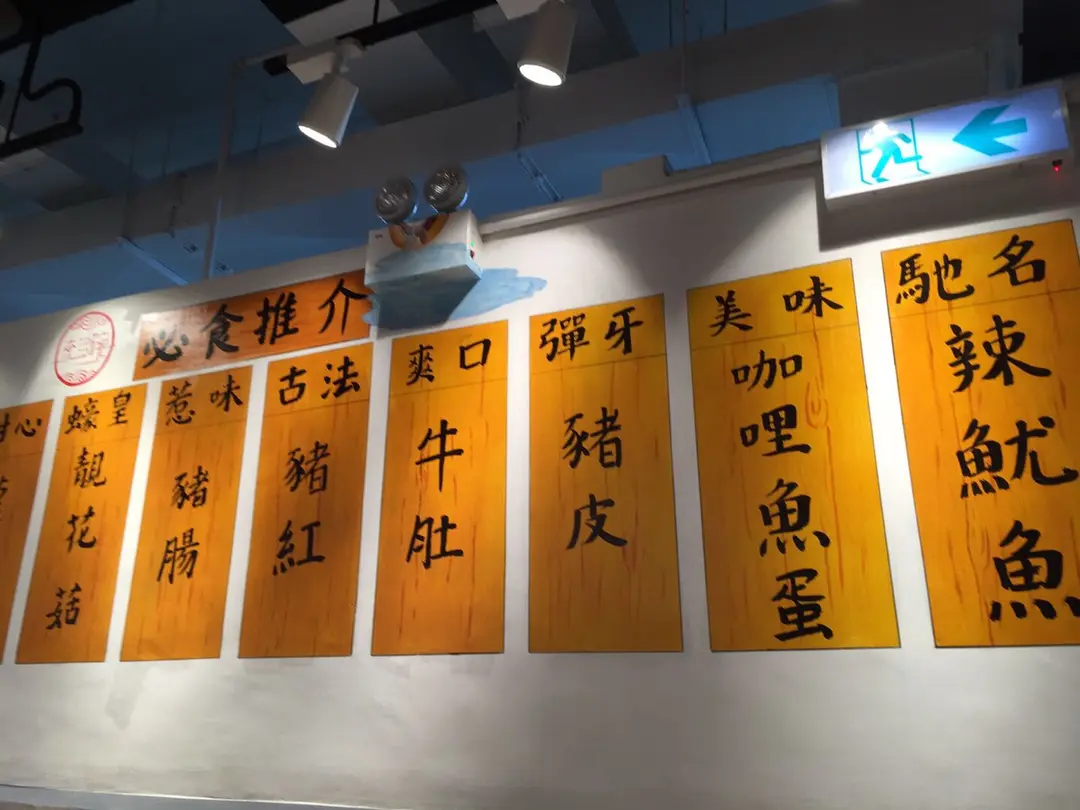 必食推介
心
蠔皇
靚花菇
惹味
豬腸
古法
豬紅
爽口
牛肚
彈牙
豬皮
美味
咖哩魚蛋
馳名
辣魷魚